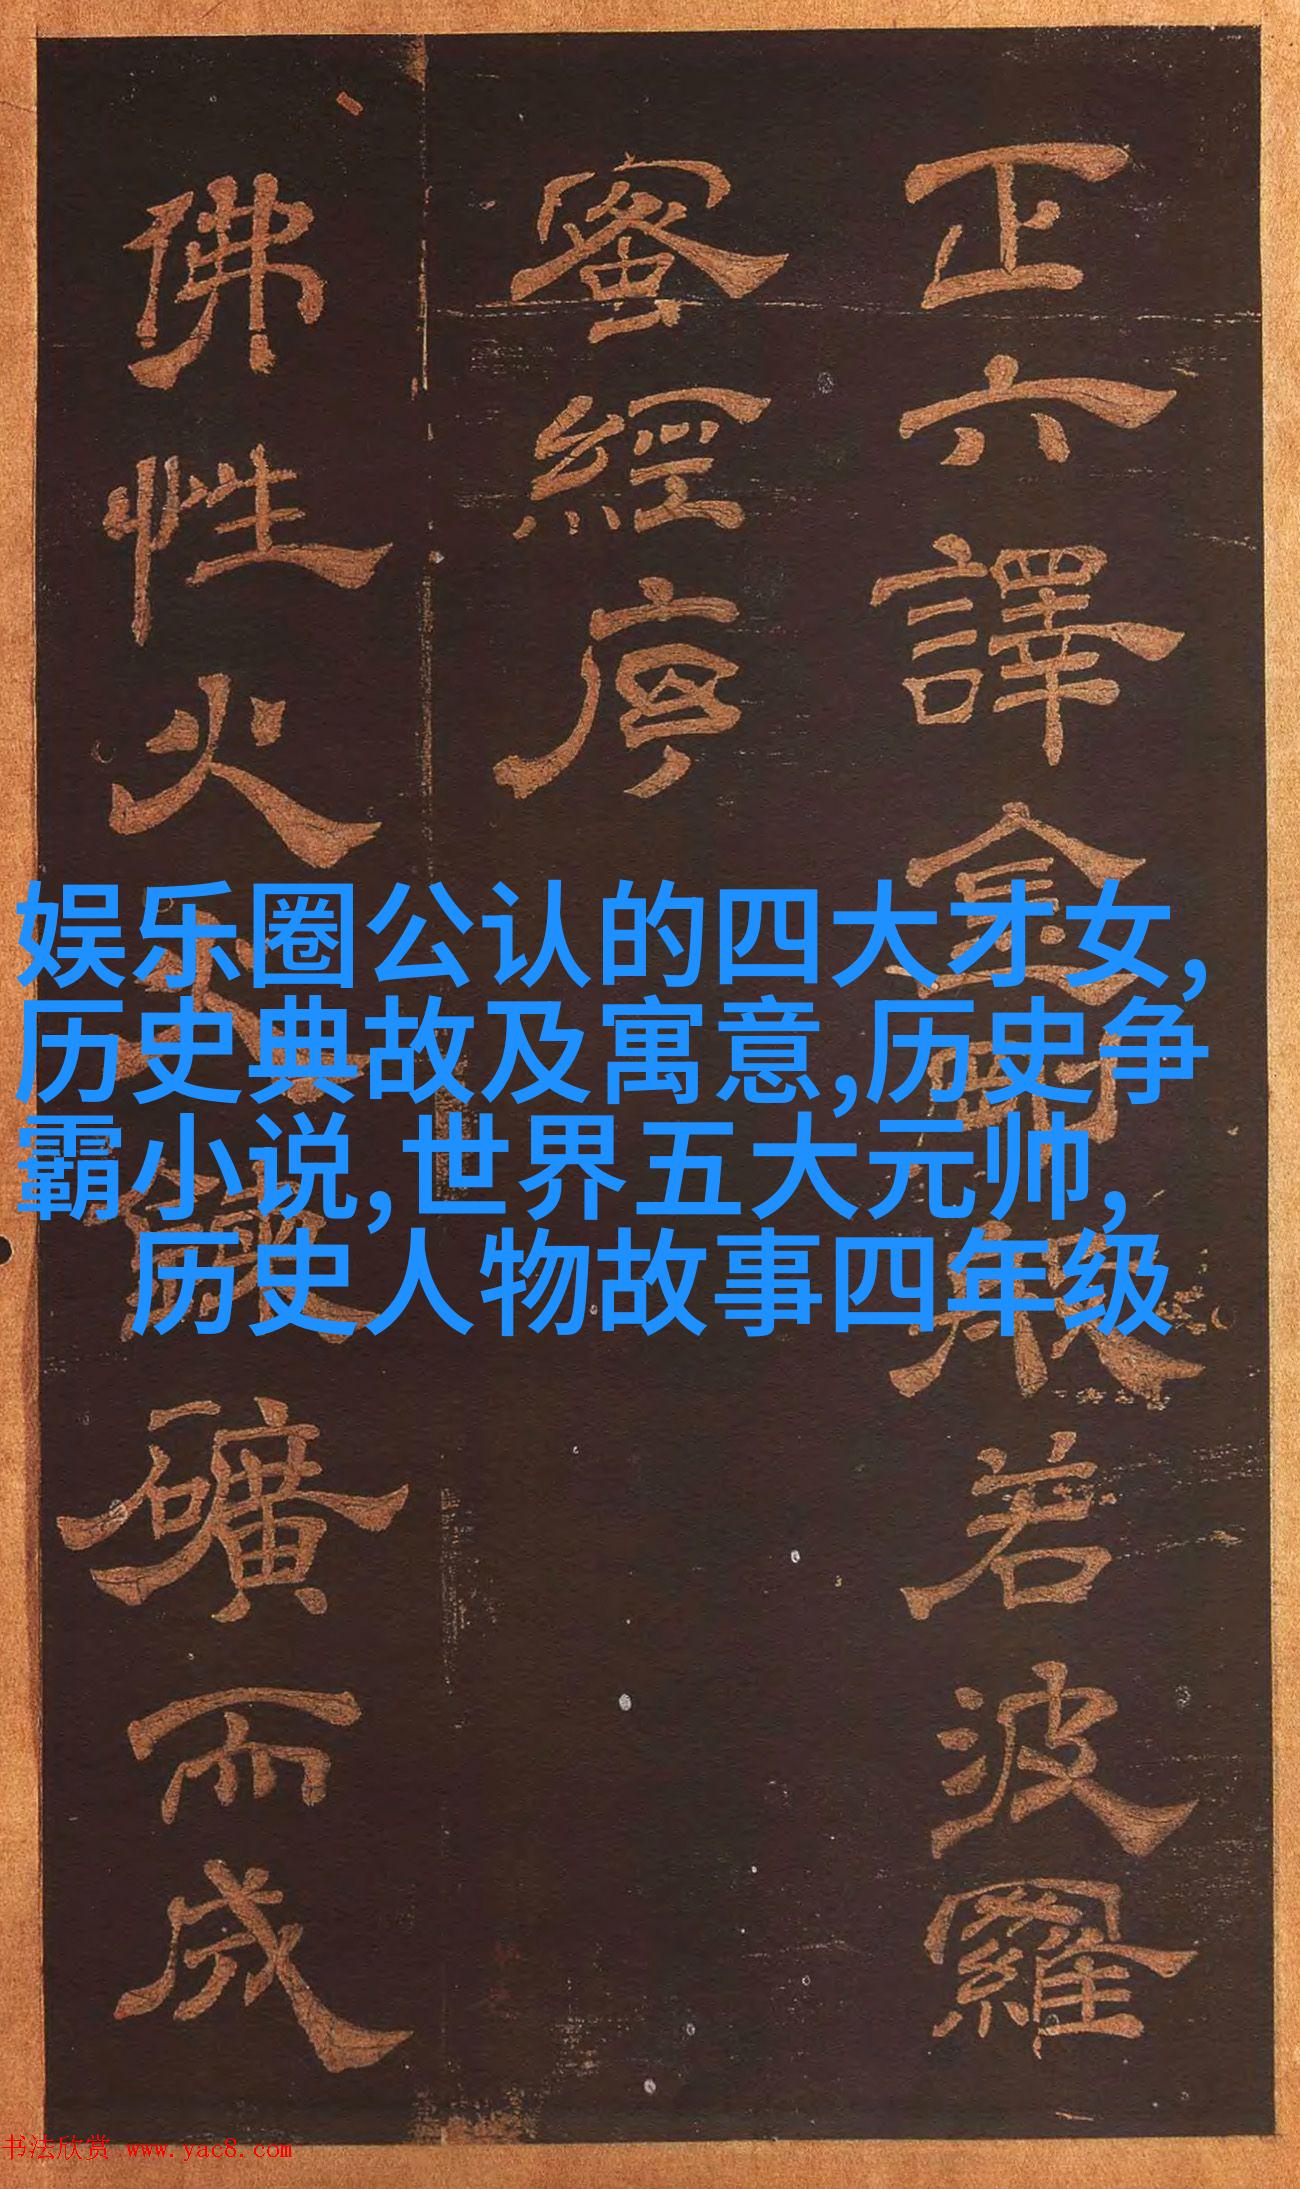 正六譯金剛般若波羅
蜜經序
佛性火
礦而成
娱乐圈公认的四大才女,
历史典故及寓意,历史争
霸小说,世界五大元帅,
历史人物故事四年级
书法欣赏 www.yac8.com